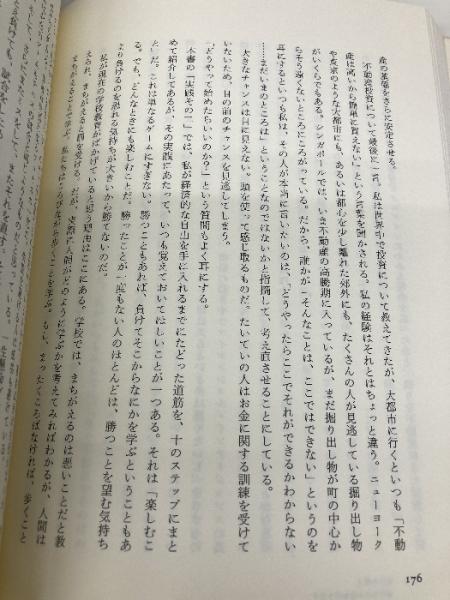 産の基盤をさらに安定させる。
不動産投資について最後に一言。私は世界中で投資について教えてきたが、大都市に行くといつも「不動
産は高いから簡単に買えない」という言葉を聞かされる。私の経験はそれとはちょっと違う。ニューヨーク
や東京のような大都市にも、あるいは都心を少し離れた郊外にも、たくさんの人が見逃している掘り出し物
がいくらでもある。シンガポールでは、いま不動産の高騰期に入っているが、まだ掘り出し物が町の中心か
らそう遠くないところにころがっている。だから、誰かが「そんなことは、ここではできない」というのを
耳にするといつも私は、その人が本当に言いたいのは、「どうやったらここでそれができるかわからない
……まだいまのところは」ということなのではないかと指摘して、考え直させることにしている。
大きなチャンスは目に見えない。頭を使って感じ取るものだ。たいていの人はお金に関する訓練を受けて
いないため、目の前のチャンスを見逃してしまう。
「どうやって始めたらいいのか？」という質問もよく耳にする。
本書の「実践その二」では、私が経済的な自由を手に入れるまでにたどった道筋を、十のステップにまと
めて紹介してあるが、その実践にあたって、いつも覚えておいてほしいことが一つある。それは「楽しむこ
と」だ。これは単なるゲームにすぎない。勝つこともあれば、負けてそこからなにかを学ぶということもあ
る。でも、どんなときにも楽しむことだ。勝ったことが一度もない人のほとんどは、勝つことを望む気持ち
より負けるのを恐れる気持ちが大きいから勝てないのだ。
私が現在の学校教育がばかげていると思う理由はここにある。学校では、まちがえるのは悪いことだと教
えられ、まちがえると罰を受ける。だが、実際に人間がどのように学ぶかを考えてみればわかるが、人間は
まちがえることで学ぶ。私たちはころびながら歩くことを学ぶ。もし、まったくころばなければ、歩くこと
176